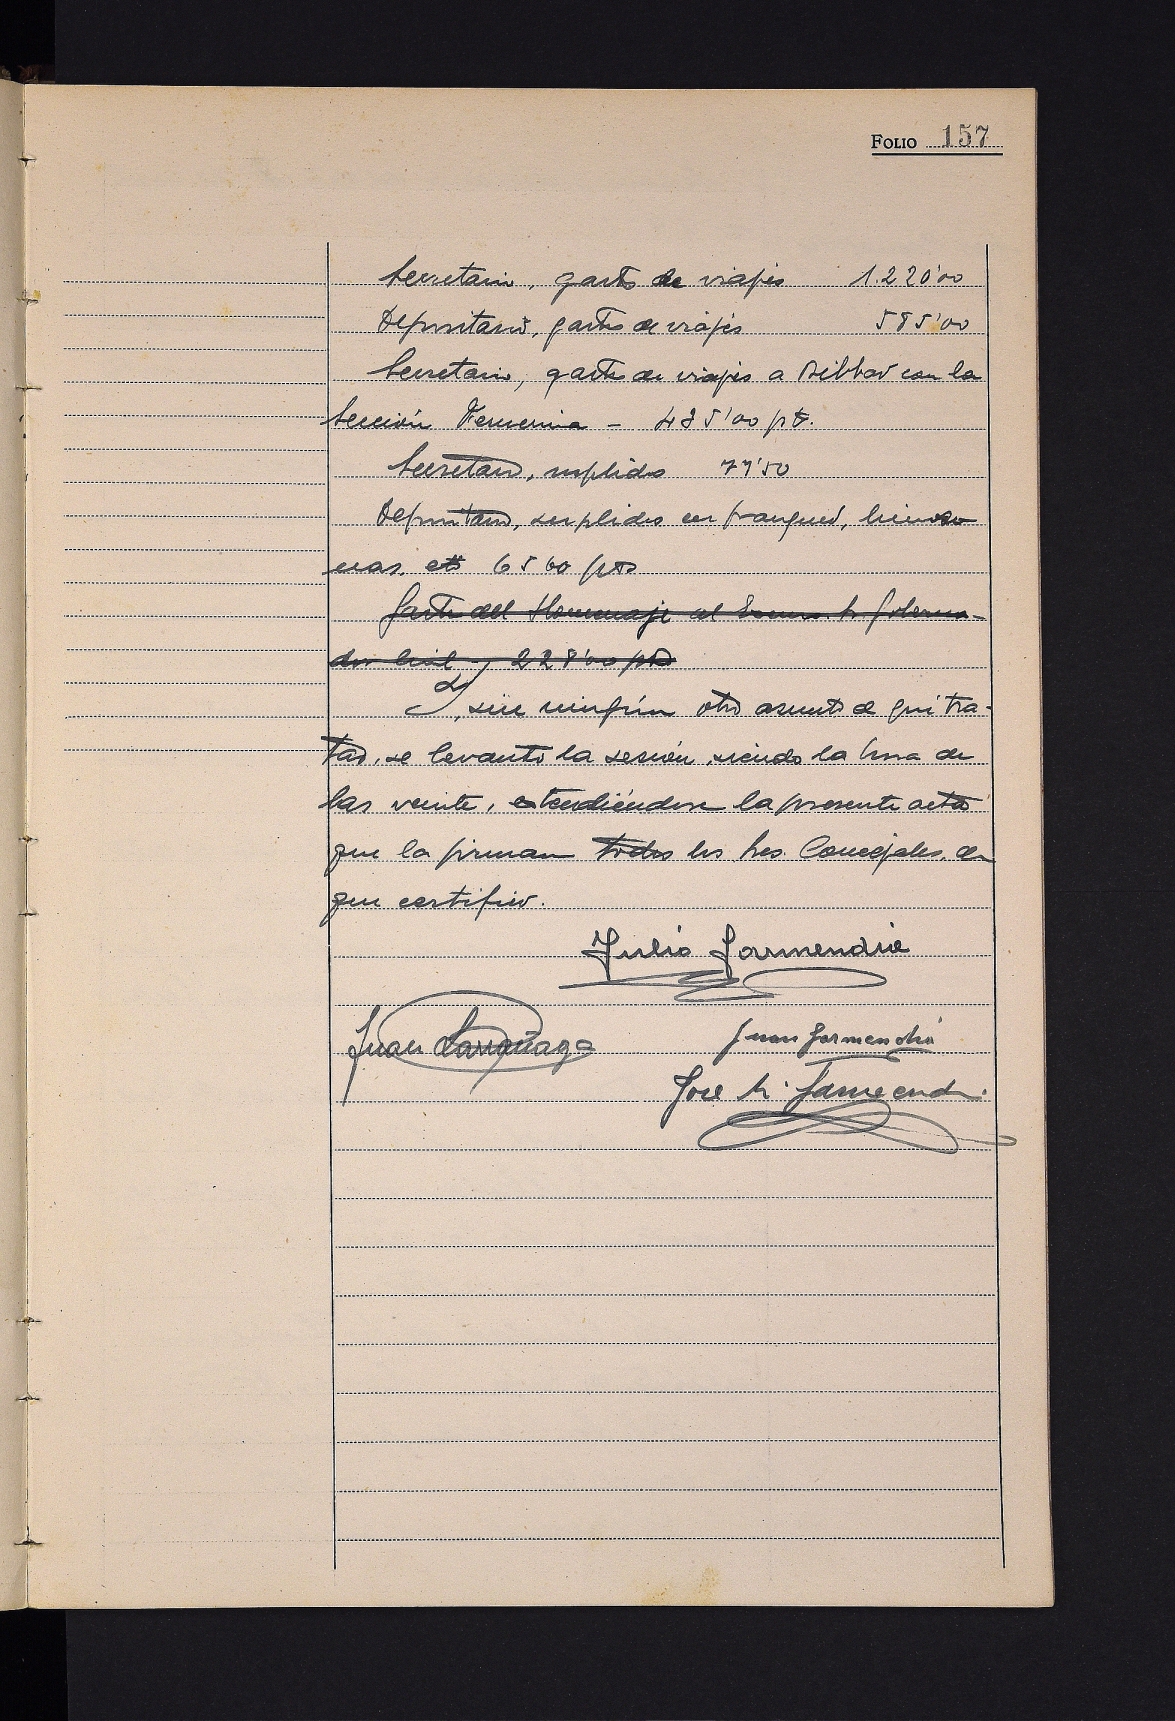 FOLIO 157
Secretario, gastos de viajes 1.220'00
Depositario, gastos de viajes 585'00
Secretario, gastos de viajes a Bilbao con la
Sección Femenina - 485'00 pts.
Secretario, suplidos 77'50
Depositario, suplidos en franqueo, limos-
nas, etc 65'60 pts
Gastos del Homenaje al Excmo. Sr. Goberna-
dor Civil - 228'00 pts
Y, sin ningún otro asunto de que tra-
tar, se levantó la sesión, siendo la hora de
las veinte, extendiéndose la presente acta
que la firman todos los Sres. Concejales, de
que certifico.
Julio Garmendia
Juan Larrañaga
Juan Garmendia
José M. Garmendia